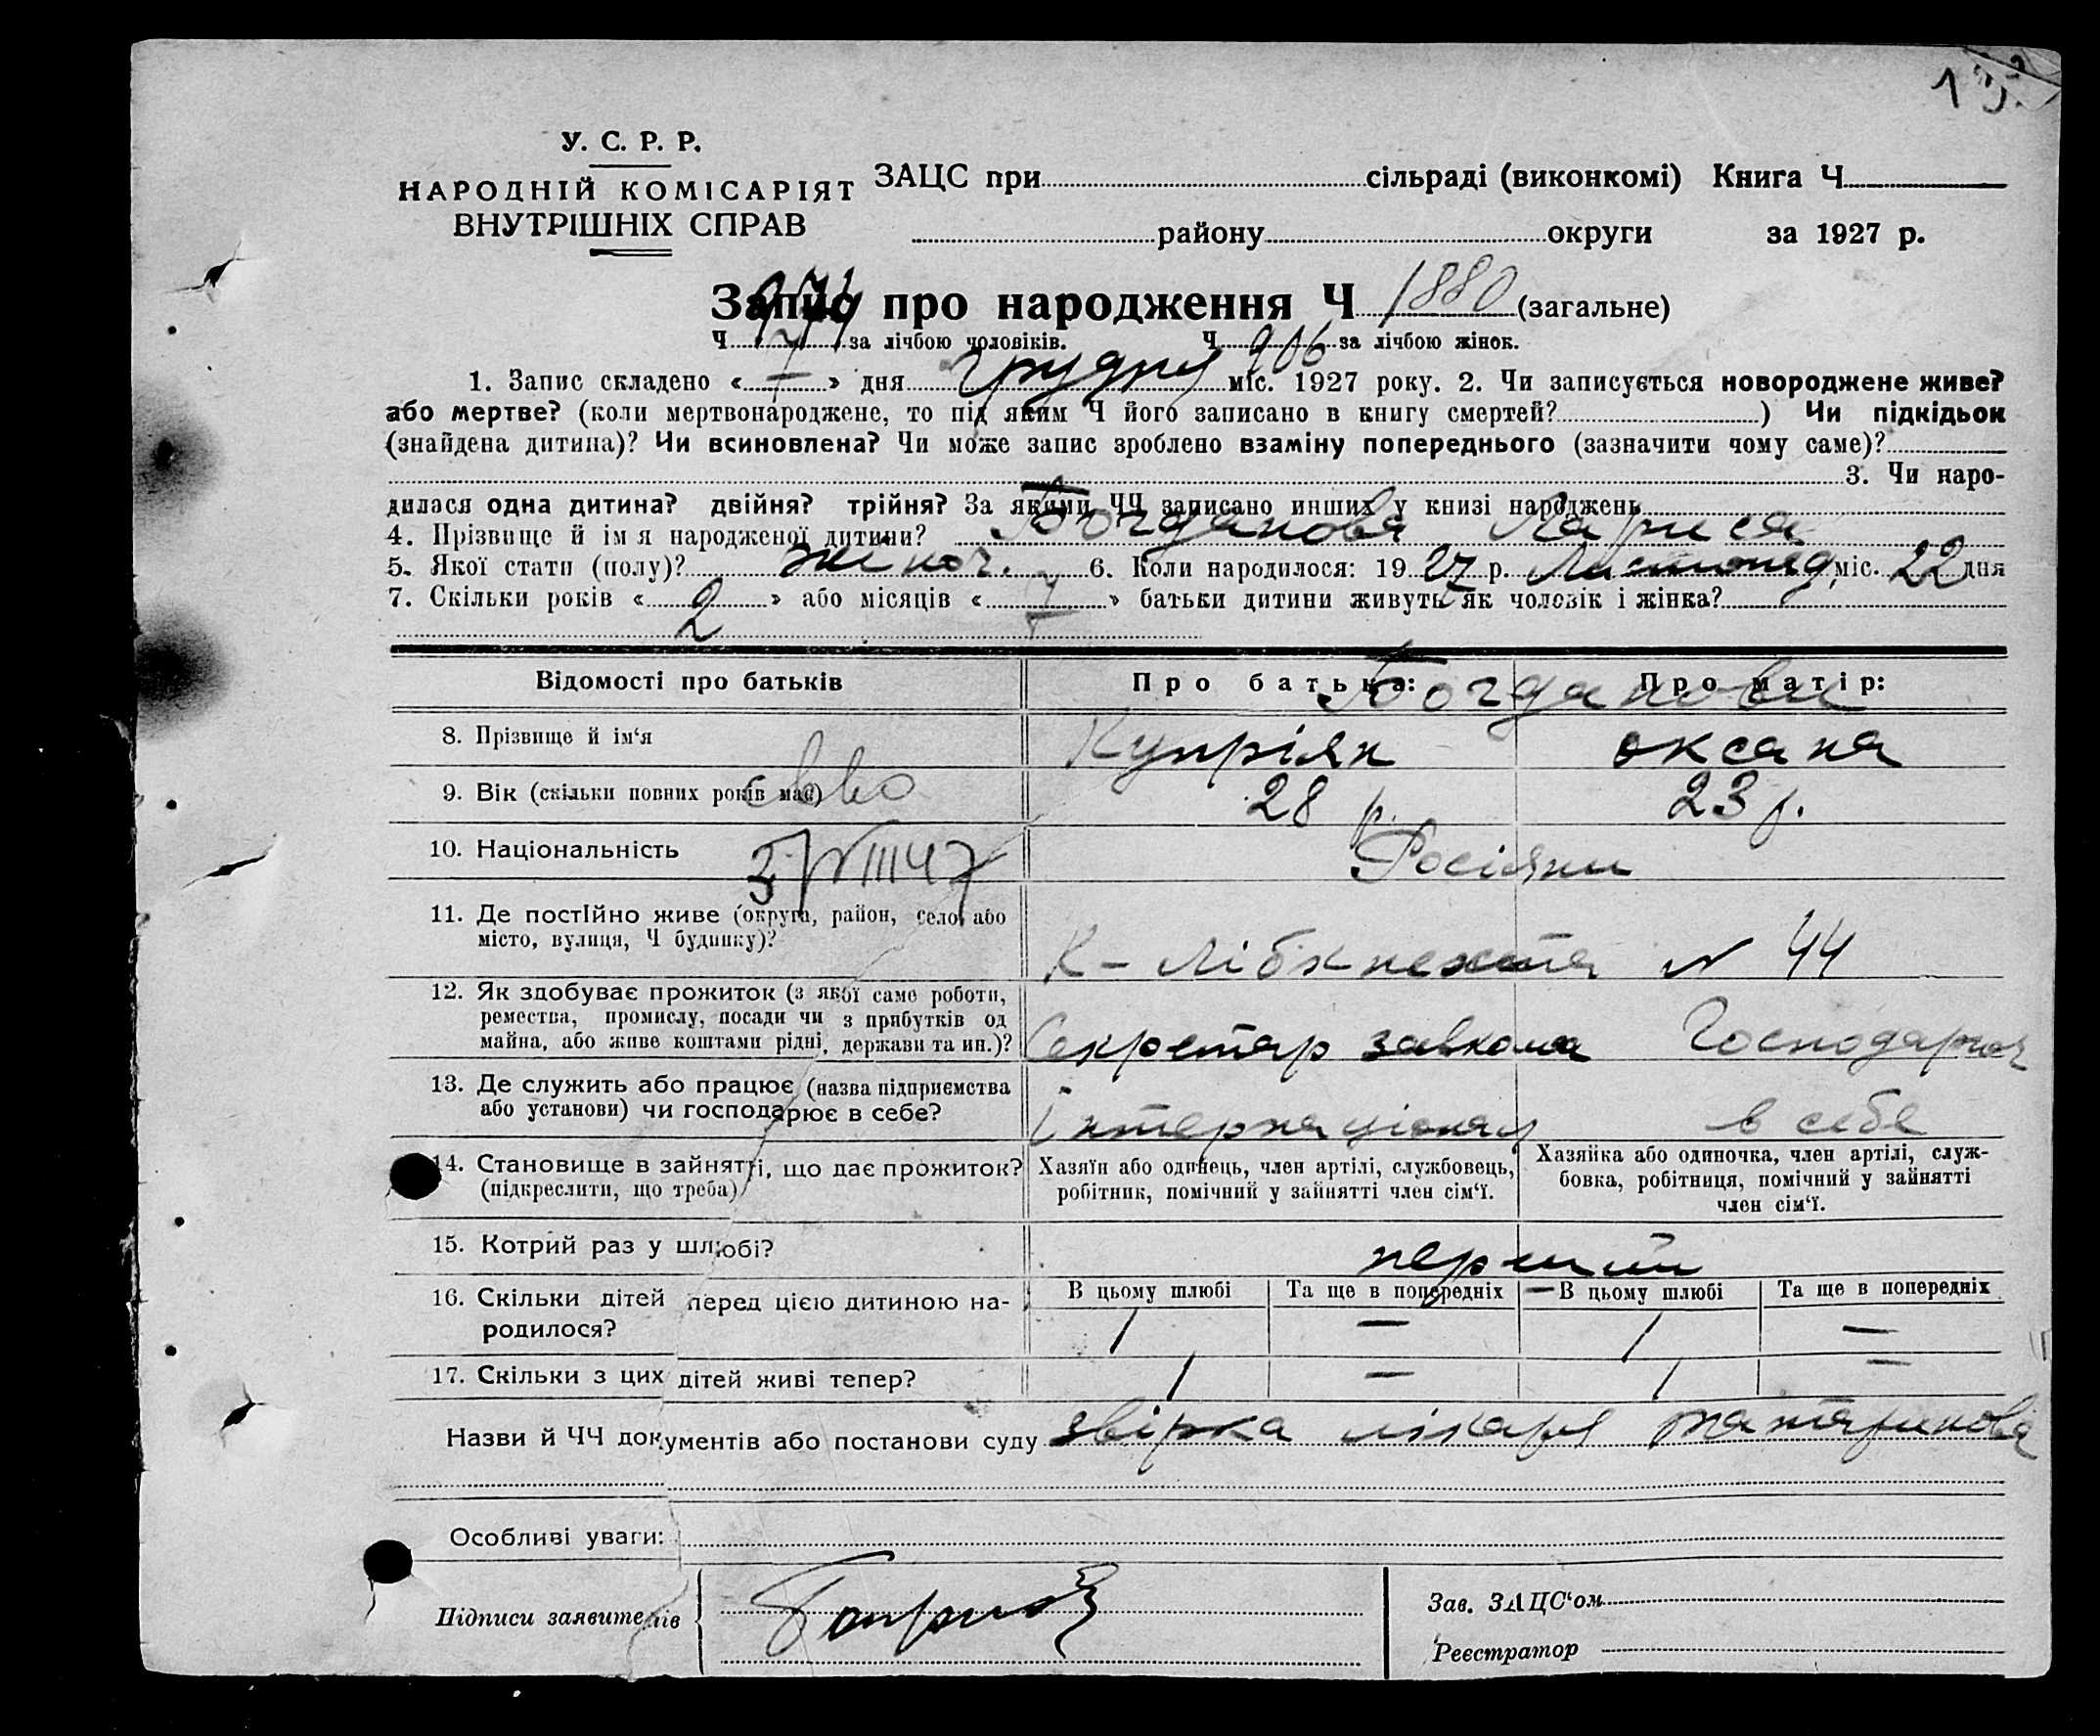 У. С. Р. Р.
НАРОДНІЙ КОМІСАРІЯТ
ВНУТРІШНІХ СПРАВ
ЗАЦС при сільраді (виконкомі) Книга Ч
району округи за 1927 р.
Запис про народження Ч 1880 (загальне)
Ч 974 за лічбою чоловіків. Ч 906 за лічбою жінок.
1. Запис складено « 7 » дня грудня міс. 1927 року. 2. Чи записується новороджене живе?
або мертве? (коли мертвонароджене, то під яким Ч його записано в книгу смертей? ) Чи підкідьок
(знайдена дитина)? Чи всиновлена? Чи може запис зроблено взаміну попереднього (зазначити чому саме)?
3. Чи наро-
дилася одна дитина? двійня? трійня? За якими ЧЧ записано инших у книзі народжень
4. Прізвище й імя народженої дитини? Богданова Лариса
5. Якої стати (полу)? жіноч. 6. Коли народилося: 19 27 р. Листопад, міс. 22 дня
7. Скільки років « 2 » або місяців « » батьки дитини живуть як чоловік і жінка?
Відомості про батьків Про батька: Про матір:
Богданови
8. Прізвище й ім‘я Купріян оксана
9. Вік (скільки повних років має) 28 р. 23 р.
10. Національність Росіяни
11. Де постійно живе (округа, район, село, або
місто, вулиця, Ч будинку)?
К-Лібкнехта № 44
12. Як здобуває прожиток (з якої саме роботи,
ремества, промислу, посади чи з прибутків од
майна, або живе коштами рідні, держави та ин.)?
Секретар завкома Господарюе
13. Де служить або працює (назва підприємства
або установи) чи господарює в себе?
Інтернаціонал в себе
14. Становище в зайнятті, що дає прожиток?
(підкреслити, що треба)
Хазяїн або одинець, член артілі, службовець,
робітник, помічний у зайнятті член сім‘ї.
Хазяйка або одиночка, член артілі, служ-
бовка, робітниця, помічний у зайнятті
член сім‘ї.
15. Котрий раз у шлюбі? перший
16. Скільки дітей перед цією дитиною на-
родилося?
В цьому шлюбі Та ще в попередніх В цьому шлюбі Та ще в попередніх
1 — 1 —
17. Скільки з цих дітей живі тепер? 1 — 1 —
Назви й ЧЧ документів або постанови суду звірка лікаря татаринова
Особливі уваги:
Підписи заявителів
Зав. ЗАЦС‘ом
Реєстратор